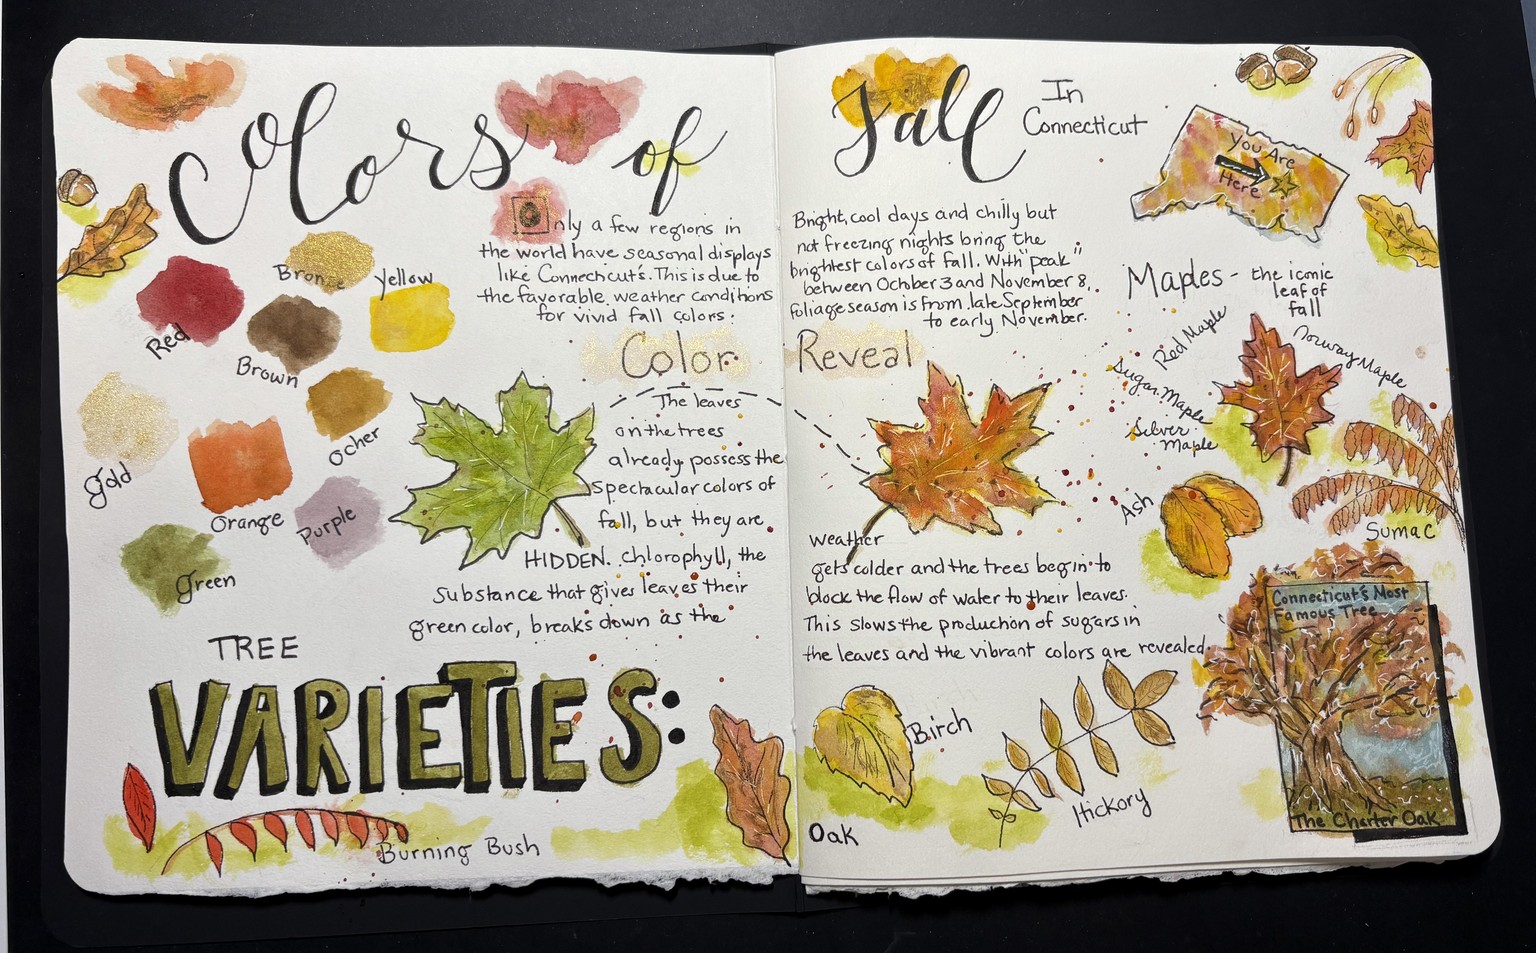 Colors of
Fall
In
Connecticut
You Are
Here
Only a few regions in
the world have seasonal displays
like Connecticut's. This is due to
the favorable weather conditions
for vivid fall colors:
Bright, cool days and chilly but
not freezing nights bring the
brightest colors of fall. With "peak"
between October 3 and November 8,
foliage season is from late September
to early November.
Bronze
Yellow
Red
Brown
Gold
Ocher
Orange
Purple
Green
Color Reveal
The leaves
on the trees
already possess the
spectacular colors of
fall, but they are
HIDDEN. Chlorophyll, the
substance that gives leaves their
green color, breaks down as the
weather
gets colder and the trees begin to
block the flow of water to their leaves.
This slows the production of sugars in
the leaves and the vibrant colors are revealed.
Maples - the iconic
leaf of
fall
Red Maple
Norway Maple
Sugar Maple
Silver
Maple
Ash
Sumac
TREE
VARIETIES:
Burning Bush
Oak
Birch
Hickory
Connecticut's Most
Famous Tree
The Charter Oak